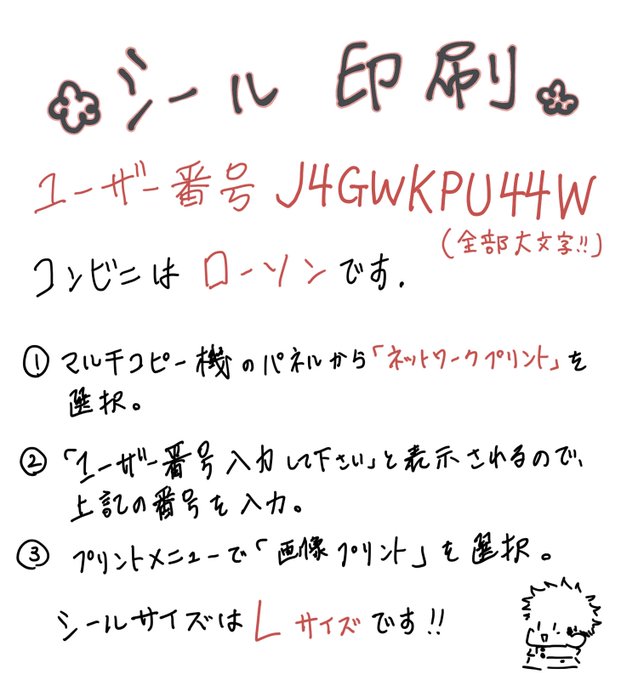 シール 印刷
ユーザー番号 J4GWKPU44W
(全部大文字!!)
コンビニは ローソンです.
① マルチコピー機のパネルから「ネットワークプリント」を
選択。
② 「ユーザー番号入力して下さい」と表示されるので、
上記の番号を入力。
③ プリントメニューで「画像プリント」を選択。
シールサイズは Lサイズです!!